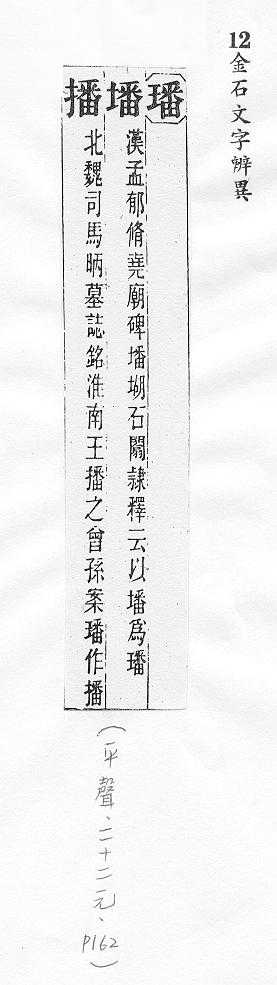 12金石文字辨異
璠
墦 漢孟郁脩堯廟碑墦㻚石闕隸釋云以墦為璠
播 北魏司馬昞墓誌銘淮南王播之曾孫案璠作播
(平聲、二十二元、P162)